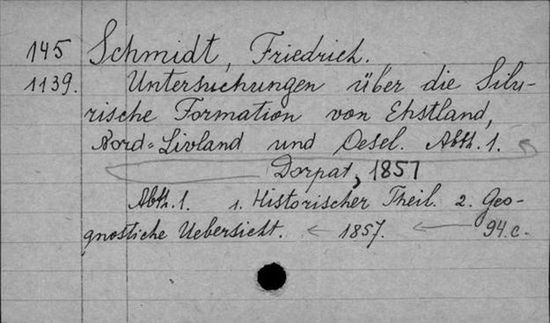 145 Schmidt, Friedrich.
1139. Untersuchungen über die Silu-
rische Formation von Ehstland,
Nord-Livland und Oesel. Abth. 1.
Dorpat, 1857
Abth. 1. 1. Historischer Theil. 2. Geo-
gnostiche Uebersicht. 1857. 94.c.